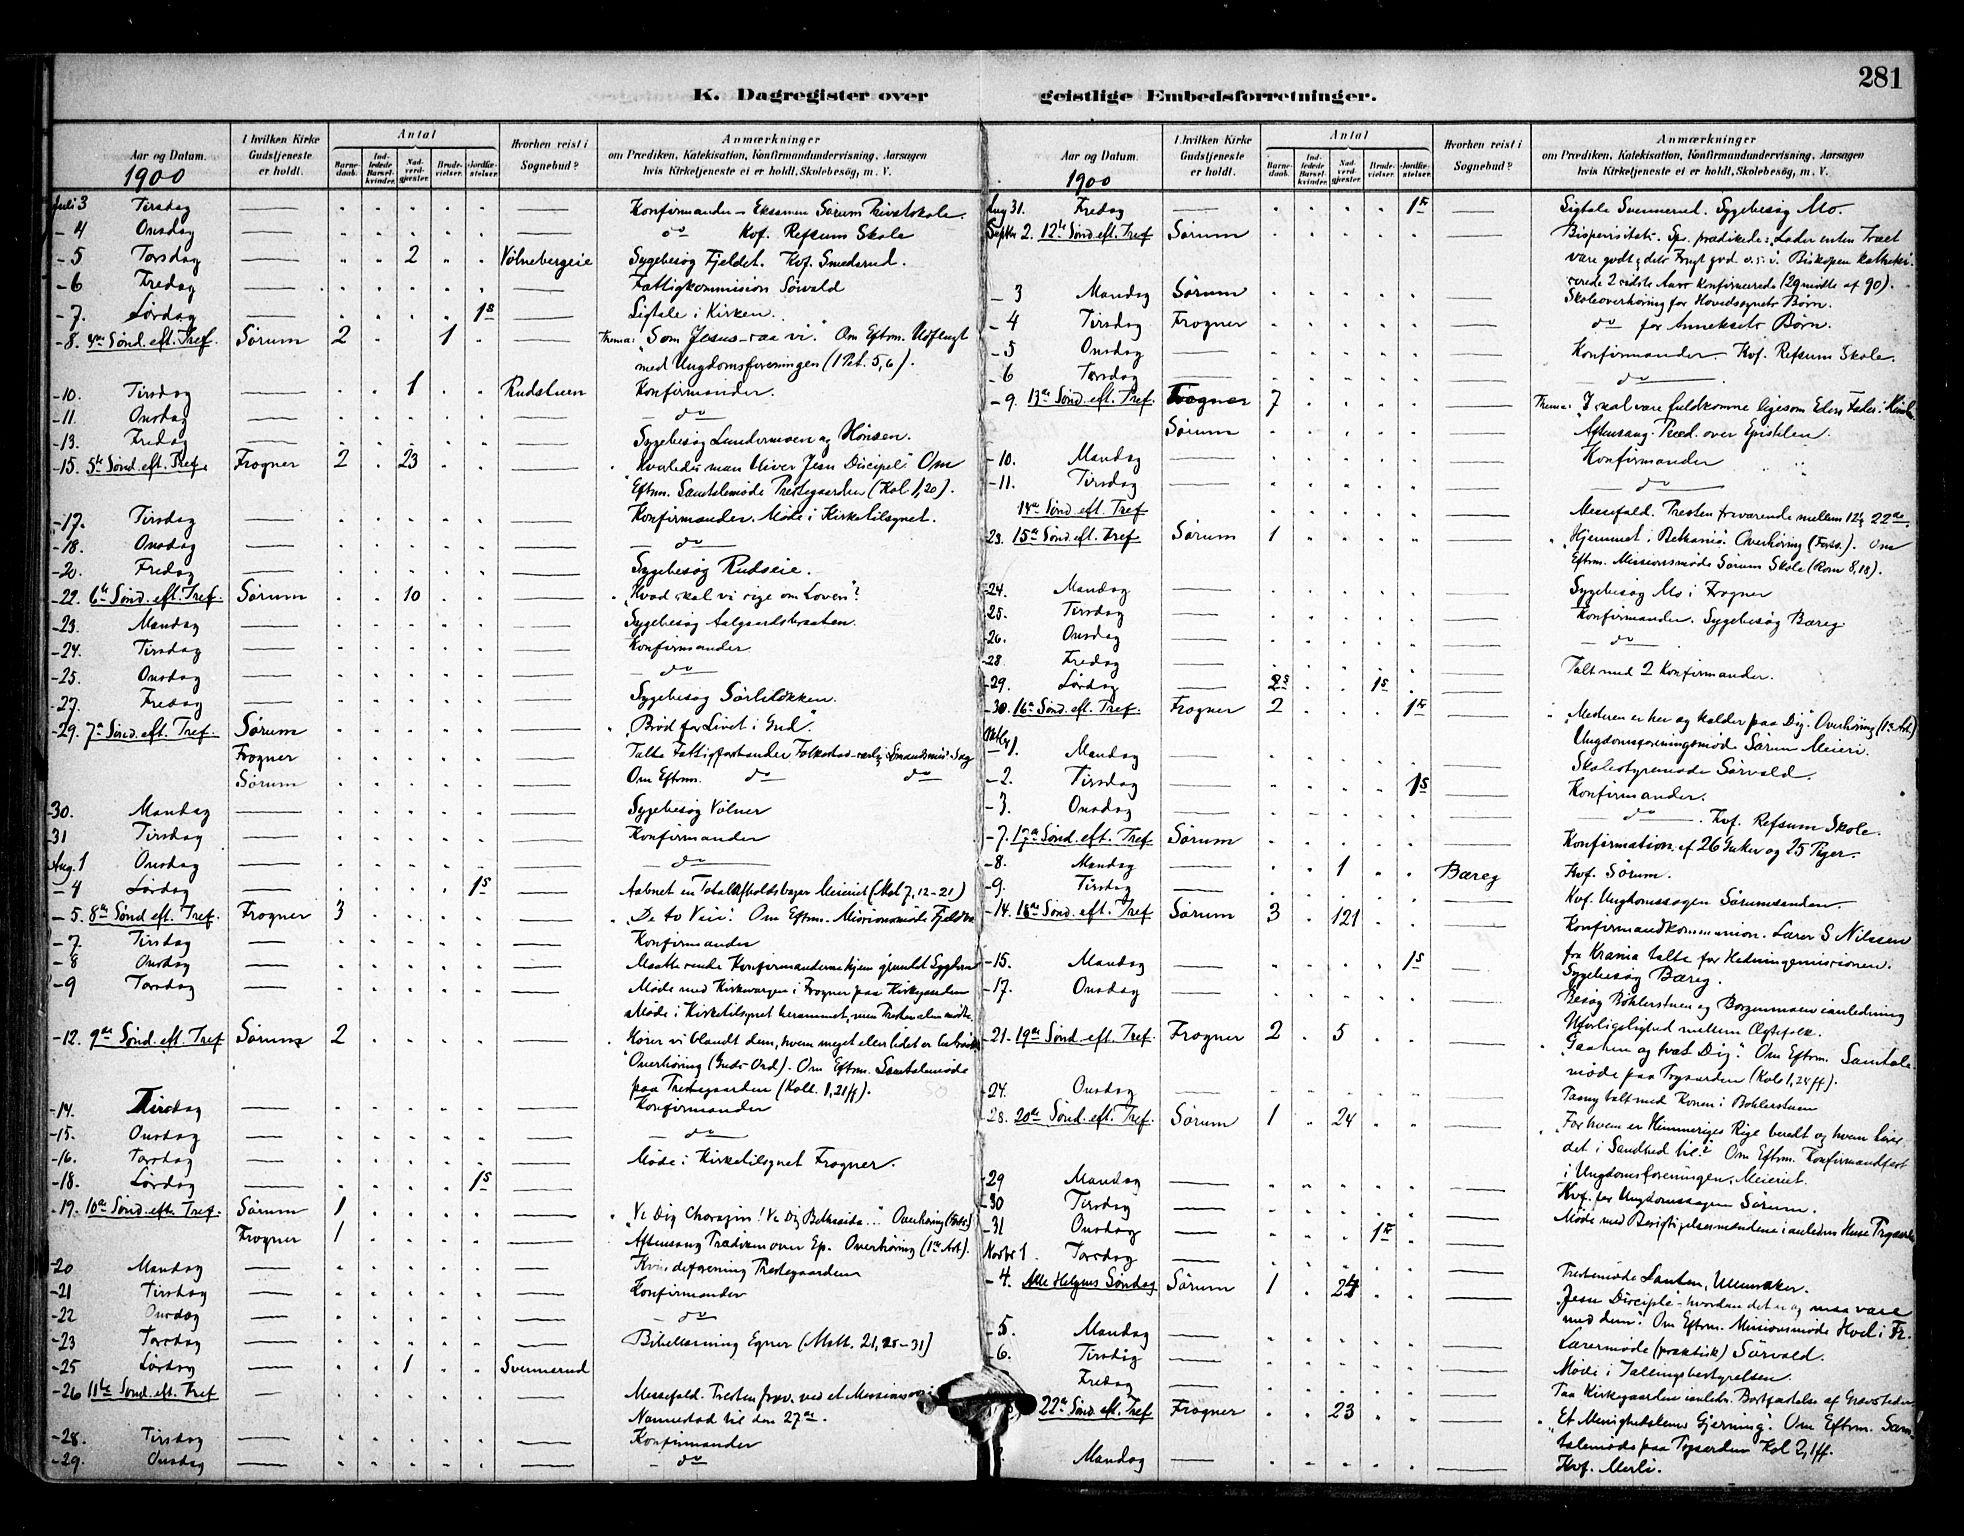 281
K. Dagregister over geistlige Embedsforretninger.
Aar og Datum.
1900
I hvilken Kirke Gudstjeneste er holdt.
Antal
Barnedaab.
Indledede Barselkvinder.
Nadverdgjester.
Brudevielser.
Jordfæstelser.
Hvorhen reist i Sognebud?
Anmærkninger
om Prædiken, Katekisation, Konfirmandundervisning, Aarsagen
hvis Kirketjeneste ei er holdt, Skolebesøg, m. V.
Juli 3 Tirsdag Konfirmander – Eksamen Sørum Privatskole.
- 4 Onsdag do Kvf. Refsum Skole
- 5 Torsdag 2 Vølnebergeie Sygebesøg Fjeldet. Kvf. Smedsrud.
- 6 Fredag Fattigkommission Sørvald
- 7. Lørdag 1 S Ligtale i Kirken.
- 8. 4de Sønd. eft. Tref. Sørum 2 1 Thema: "Som Jesus – saa vi." Om Eftm. Udflugt
med Ungdomsforeningen (1 Pet. 5,6).
- 10. Tirsdag 1 Rudstuen Konfirmander.
- 11. Onsdag do
- 13. Fredag Sygebesøg Lundermoen og Hønsen.
- 15. 5te Sønd. eft. Tref. Frogner 2 23 "Hvorledes man bliver Jesu Discipel" Om
Eftm. Samtalemøde Prestegaarden (Kol. 1,20).
- 17. Tirsdag Konfirmander. Møde i Kirketilsynet.
- 18. Onsdag do
- 20. Fredag Sygebesøg Rudseie.
- 22. 6te Sønd. eft. Tref. Sørum 10 "Hvad skal vi sige om Loven"?
- 23. Mandag Sygebesøg Aalgaardsbraaten.
- 24. Tirsdag Konfirmander.
- 25. Onsdag do
- 27. Fredag Sygebesøg Sørliløkken.
- 29. 7de Sønd. eft. Tref. Sørum "Brød for Livet i Gud".
Frogner Talte Fattigforstander
Sørum Om Eftm. do do
30. Mandag Sygebesøg Vølner
31 Tirsdag Konfirmander
Aug. 1 Onsdag do
- 4 Lørdag 1 S Aabnet en Totalafholdsbazar Meieriet (Mat 7, 12-21)
- 5. 8de Sønd. eft. Tref. Frogner 3 "De to Veie". Om Eftm. Missionsmøde
- 7. Tirsdag Konfirmander
- 8 Onsdag Maatte sende Konfirmanderne hjem grundet Sygdom
- 9 Torsdag Møde med Kirkeværgen i Frogner paa Kirkegaarden
Møde i Kirketilsynet berammet, men Presten alene mødte.
- 12. 9de Sønd. eft. Tref Sørum 2 "Hører vi blandt dem, hvem meget eller lidet er
Overhøring (Guds Ord). Om Eftm. Samtalemøde
paa Prestegaarden (Koll. 1,21ff).
- 14. Tirsdag Konfirmander
- 15. Onsdag do
- 16. Torsdag Møde i Kirketilsynet Frogner.
- 18. Lørdag 1 S
- 19. 10de Sønd. eft. Tref. Sørum 1 "Ve Dig Chorazin! Ve Dig Bethsaida..." Overhøring
Frogner 1 Aftensang Prædiken over Ep. Overhøring (1ste Art).
- 20 Mandag Kvindeforening Prestegaarden
- 21 Tirsdag Konfirmander
- 22 Onsdag do
- 23 Torsdag Bibellæsning Egner (Matt. 21, 28-31)
- 25 Lørdag 1 Svennerud
- 26 11te Sønd. eft. Tref Messefald. Presten frav. ved et
Nannestad til den 27de.
- 28. Tirsdag Konfirmander
- 29. Onsdag do
Aar og Datum.
1900
I hvilken Kirke Gudstjeneste er holdt.
Antal
Barnedaab.
Indledede Barselkvinder.
Nadverdgjester.
Brudevielser.
Jordfæstelser.
Hvorhen reist i Sognebud?
Anmærkninger
om Prædiken, Katekisation, Konfirmandundervisning, Aarsagen
hvis Kirketjeneste ei er holdt, Skolebesøg, m. V.
Aug 31. Fredag 1 Fr Ligtale Svennerud. Sygebesøg Mo.
Septbr 2. 12te Sønd. eft. Tref Sørum Bispevisitats. Sp. prædikede: "Lader enten Træet
være godt & dets Frugt god o.s.v. Biskopen kateki-
serede 2 sidste Aars Konfirmerede (29 mødte af 90).
- 3 Mandag Sørum Skoleoverhøring for Hovedsognets Børn.
- 4 Tirsdag Frogner do for Anneksets Børn.
- 5 Onsdag Konfirmander – Kvf. Refsum Skole.
- 6 Torsdag do
- 9. 13de Sønd. eft. Tref. Frogner 7 Thema: "I skal være fuldkomne ligesom Eders Fader i
Sørum Aftensang. Præd. over Epistelen.
- 10. Mandag Konfirmander
- 11. Tirsdag do
14de Sønd. eft. Tref Messefald. Presten fraværende mellem 12 & 22de.
23. 15de Sønd. eft. Tref Sørum 1 "Hjemmet i Bethania" Overhøring (Fors.). Om
Eftm. Missionsmøde Sørum Skole (Rom 8,18).
- 24. Mandag Sygebesøg Mo i Frogner
- 25. Tirsdag Konfirmander. Sygebesøg Bæreg
- 26. Onsdag do
- 28. Fredag Talt med 2 Konfirmander.
- 29. Lørdag 2 S 1 S
- 30. 16de Sønd. eft. Tref. Frogner 2 1 Fr "Mesteren er her og kalder paa Dig". Overhøring (1ste Art)
Ungdomsforeningsmøde Sørum Meieri.
Oktbr 1. Mandag Skolestyremøde Sørvald.
- 2. Tirsdag 1 S Konfirmander.
- 3. Onsdag do. Kvf. Refsum Skole.
- 7. 17de Sønd. eft. Tref Sørum Konfirmation af 26 Gutter og 25 Piger.
- 8. Mandag 1 Bæreg Kvf. Sørum.
- 9. Tirsdag Kvf. Ungdomssagen Sørumsanden.
- 14. 18de Sønd. eft. Tref Sørum 3 121 Konfirmandkommunion. Lærer S Nilssen
fra Krania talte for Hedningemissionen.
- 15. Mandag 1 S Sygebesøg Bæreg.
- 17. Onsdag Besøg Bøhlerstuen og Borgenmoen i anledning
Uforligelighed mellem Ægtefolk.
21. 19de Sønd. eft. Tref. Frogner 2 5 "Gaa hen og toæt Dig." Om Eftm. Samtale-
møde paa Prgaarden (Kol. 1,24 ff).
- 24. Onsdag talt med Konen i Bøhlerstuen
- 28. 20de Sønd. eft. Tref. Sørum 1 24 "For hvem er Himmeriges Rige beredt og hvem
det i Sandhed til?" Om Eftm. Konfirmandfest
i Ungdomsforeningen, Meieriet.
- 29 Mandag Kvf. for Ungdomssagen Sørum.
- 30 Tirsdag Møde med Besigtigelsesmændene i anledn. Huse Prgaarden
- 31 Onsdag 1 Fr
Novbr 1. Torsdag Prestemøde Ullensaker.
- 4. Alle Helgens Søndag Sørum 1 24 "Jesu Disciple – hvordan det er og maa være
med dem". Om Eftm. Missionsmøde Hvel i Fr.
- 5. Mandag Lærermøde (praktisk) Sørvald.
- 6. Tirsdag Møde i Tællingsbestyrelsen.
Fredag Paa Kirkegaarden i anledn. Bortfæstelse af Gravsteder
22de Sønd. eft. Tref Frogner 23 "Et Menighedslems Gjerning". Om Eftm. Sam-
talemøde paa Prgaarden Kol 2,1ff.
Mandag Kvf. Merli.